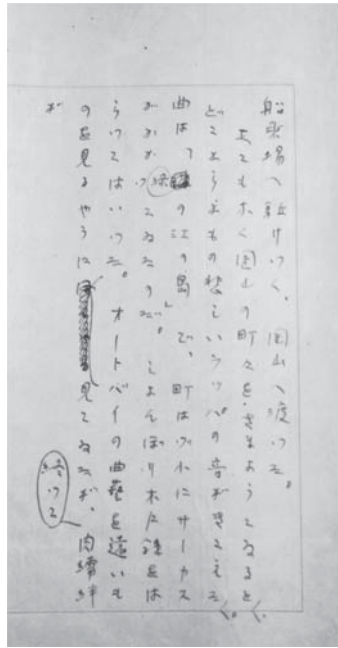 船乗場へ駈けつく。岡山へ渡つた。
あてもなく岡山の町々をさまようてゐると、
どこからかもの悲しいラッパの音が聞こえた。
曲は「の江の島」で、町はづれにサーカス
がかかつてゐたのだ。しよんぼり木戸銭をは
らつてはいつた。オートバイの曲藝を遠いも
のを見るやうに見てゐたが、終つて肉襦袢
が